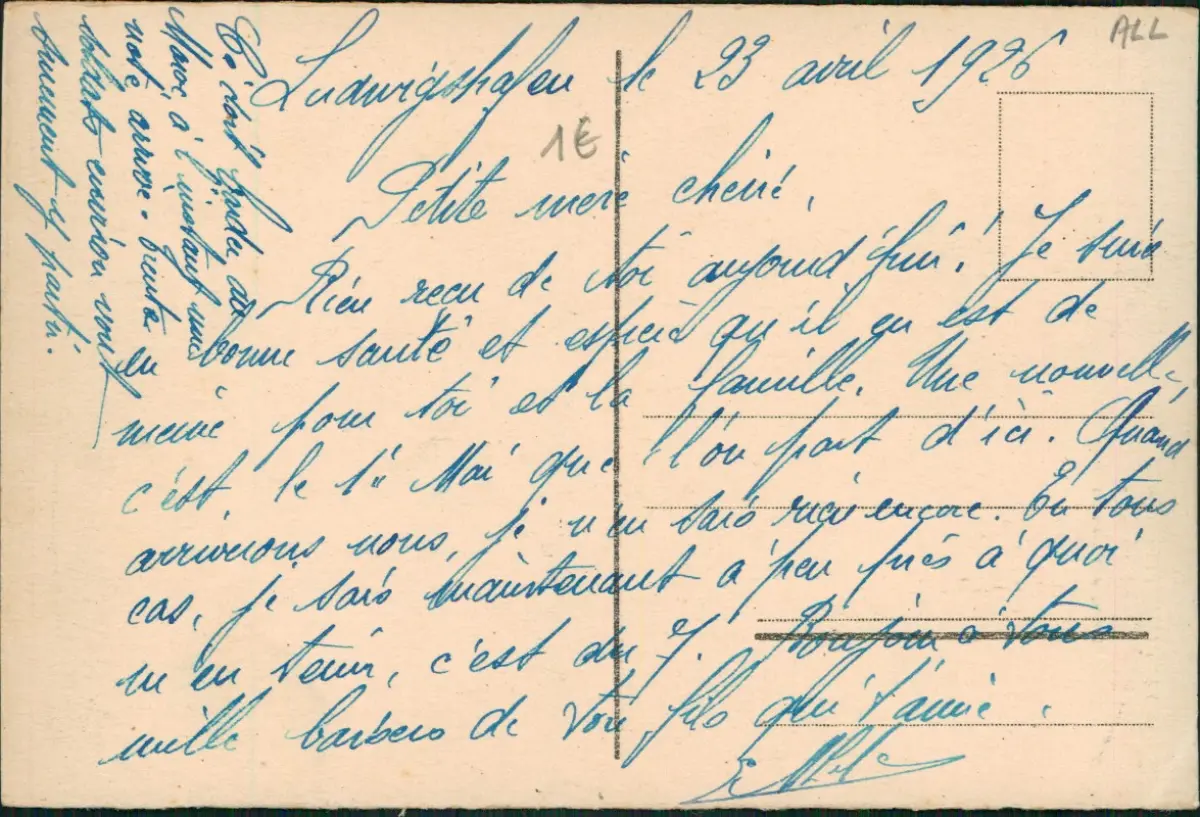 ALL
Ludwigshafen le 23 avril 1926
1€
Petite mère chérie,
Rien reçu de toi aujourd'hui! Je suis
en bonne santé et espère qu'il en est de
même pour toi et la famille. Une nouvelle,
c'est le 1er Mai que l'on part d'ici. Quand
arriverons nous, je n'en sais rien encore. En tous
cas, je sais maintenant à peu près à quoi
m'en tenir, c'est du 7. Bonjour à tous
mille baisers de ton fils qui t'aime.
Maroc, à l'instant une
note arrive. Trente
soldats environ vont
sûrement y partir.